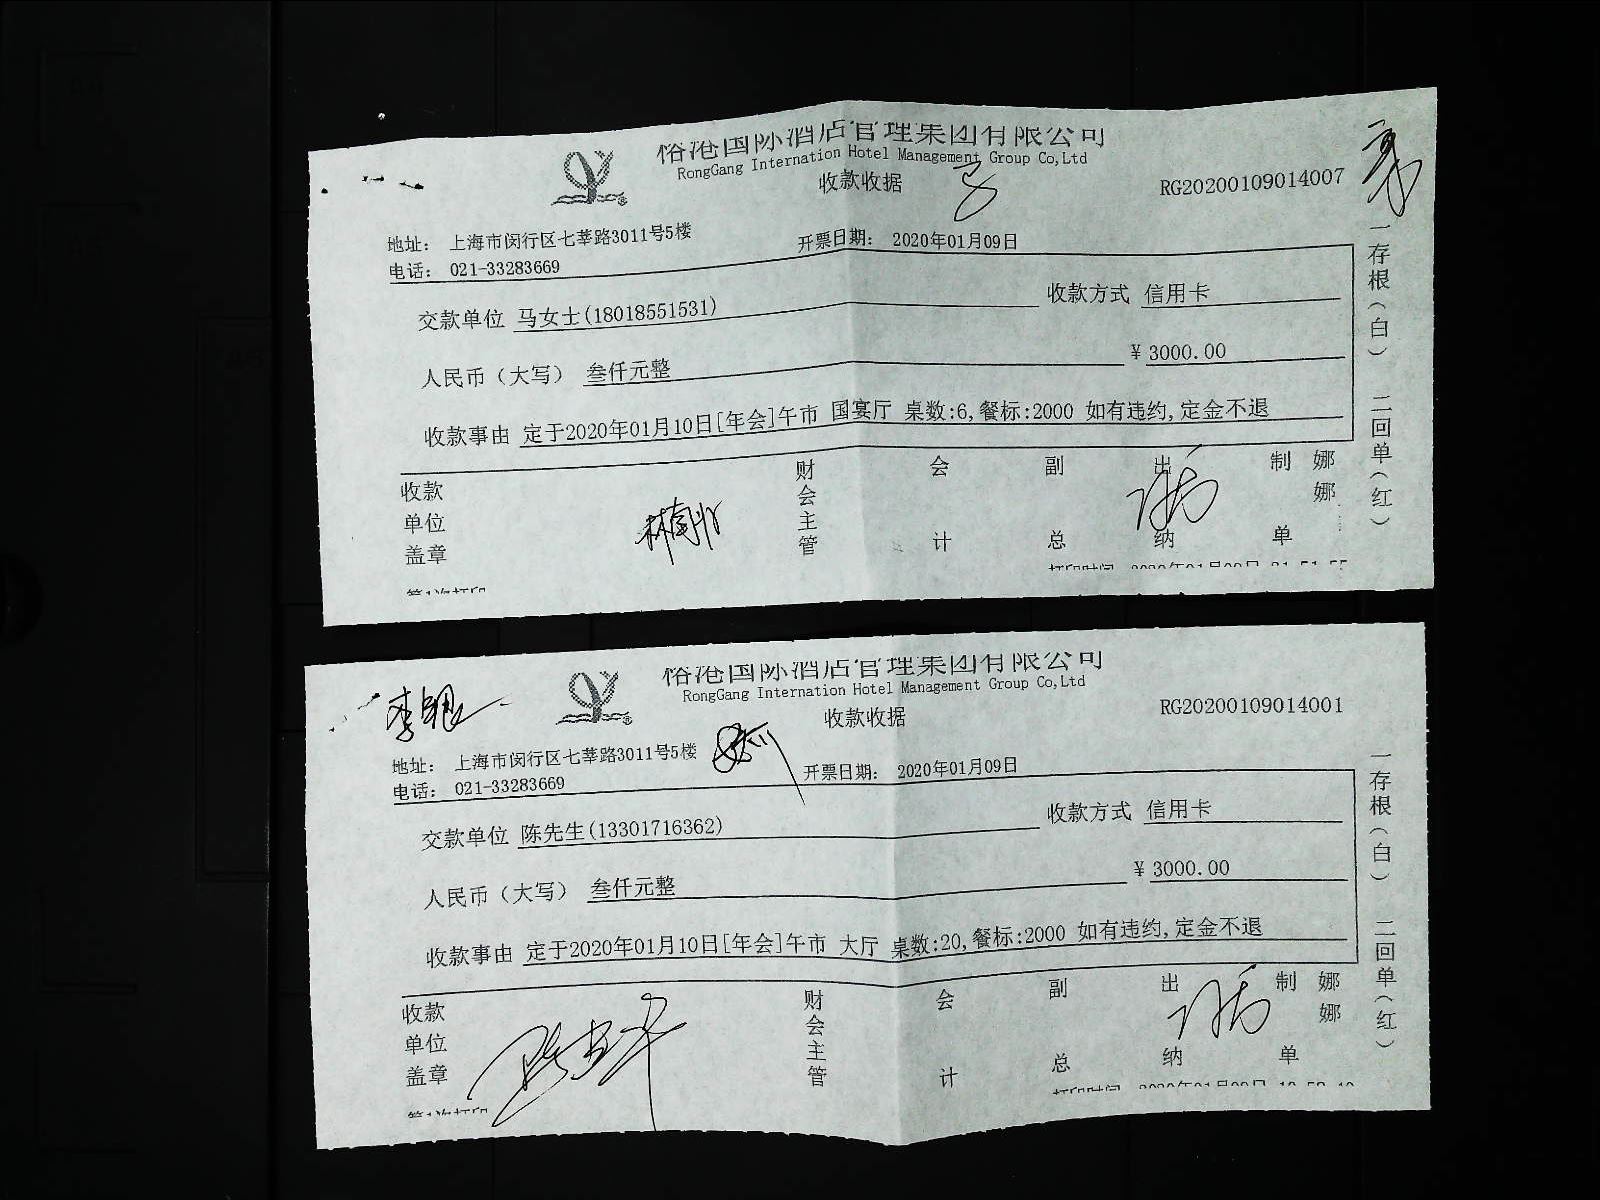 裕港国际酒店管理集团有限公司
RongGang Internation Hotel Management Group Co,Ltd
收款收据
RG20200109014007
地址： 上海市闵行区七莘路3011号5楼
开票日期： 2020年01月09日
电话： 021-33283669
交款单位 马女士(18018551531)
收款方式 信用卡
人民币（大写） 叁仟元整
¥ 3000.00
收款事由 定于2020年01月10日[年会]午市 国宴厅 桌数:6,餐标:2000 如有违约,定金不退
收款单位盖章
财会主管
会计
副总
出纳
制单
娜娜
一存根（白） 二回单（红）
第1次打印
打印时间 2020年01月09日 21:51:55
裕港国际酒店管理集团有限公司
RongGang Internation Hotel Management Group Co,Ltd
收款收据
RG20200109014001
地址： 上海市闵行区七莘路3011号5楼
开票日期： 2020年01月09日
电话： 021-33283669
交款单位 陈先生(13301716362)
收款方式 信用卡
人民币（大写） 叁仟元整
¥ 3000.00
收款事由 定于2020年01月10日[年会]午市 大厅 桌数:20,餐标:2000 如有违约,定金不退
收款单位盖章
财会主管
会计
副总
出纳
制单
娜娜
一存根（白） 二回单（红）
第1次打印
打印时间 2020年01月09日